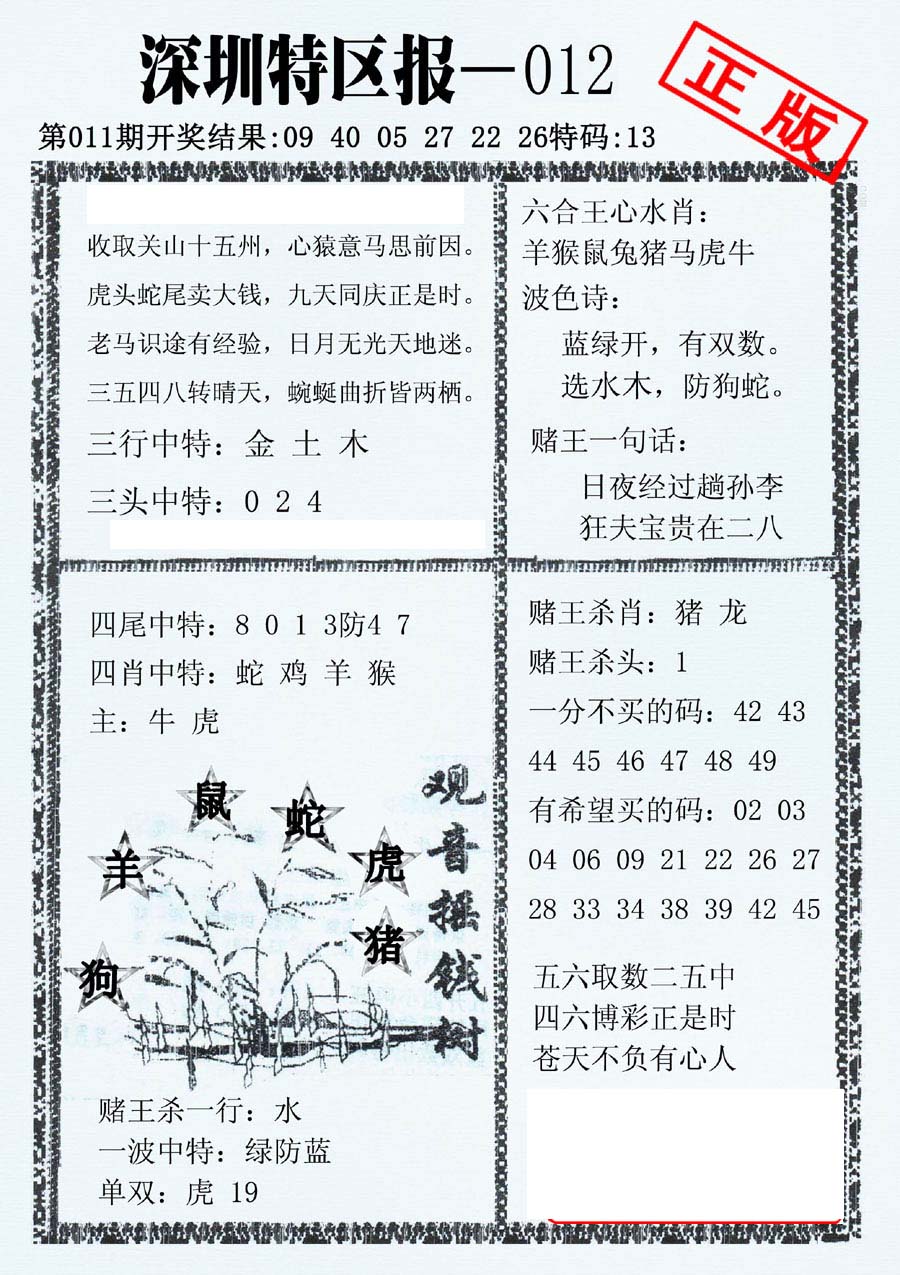 深圳特区报—012
正版
第011期开奖结果:09 40 05 27 22 26特码:13
收取关山十五州，心猿意马思前因。
虎头蛇尾卖大钱，九天同庆正是时。
老马识途有经验，日月无光天地迷。
三五四八转晴天，蜿蜒曲折皆两栖。
三行中特：金 土 木
三头中特：0 2 4
六合王心水肖：
羊猴鼠兔猪马虎牛
波色诗：
蓝绿开，有双数。
选水木，防狗蛇。
赌王一句话：
日夜经过趟孙李
狂夫宝贵在二八
四尾中特：8 0 1 3防4 7
四肖中特：蛇 鸡 羊 猴
主：牛 虎
鼠
蛇
羊
虎
猪
狗
观音摇钱树
赌王杀一行：水
一波中特：绿防蓝
单双：虎 19
赌王杀肖：猪 龙
赌王杀头：1
一分不买的码：42 43
44 45 46 47 48 49
有希望买的码：02 03
04 06 09 21 22 26 27
28 33 34 38 39 42 45
五六取数二五中
四六博彩正是时
苍天不负有心人